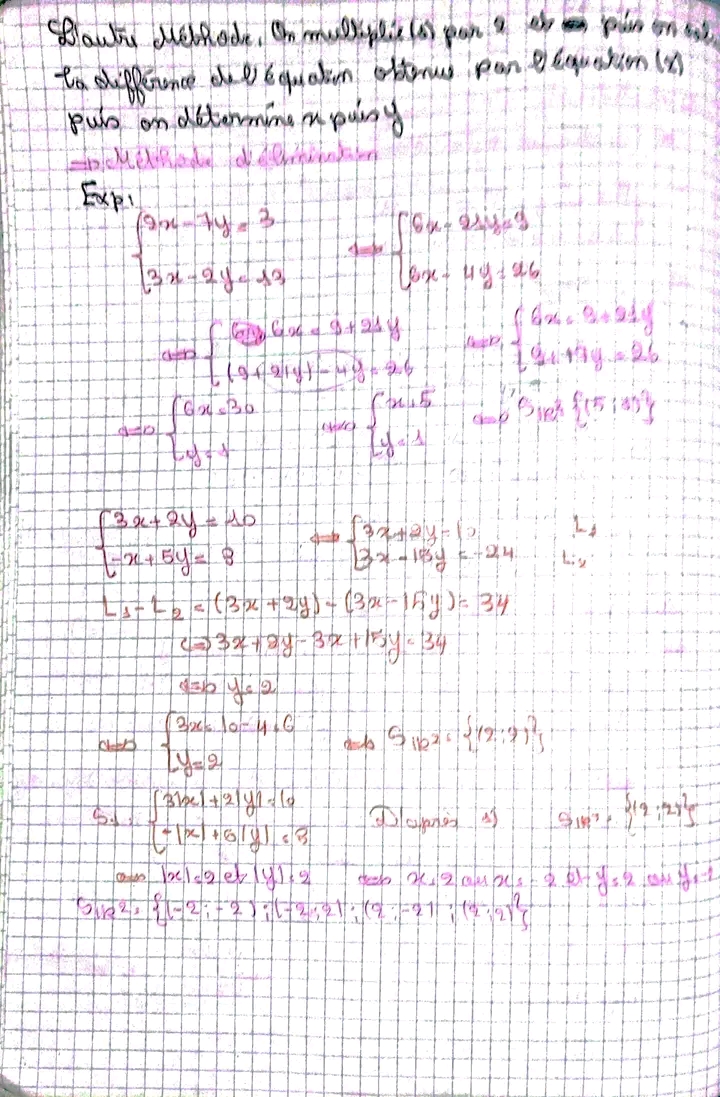 D'autre Méthode. On multiplie (1) par 2 et puis on
la différence de l'équation obtenus par l'équation (2)
puis on détermine x puis y
=> Méthode d'élimination
Exp:
{2x - 7y = 3 <=> {6x - 21y = 9
{3x - 2y = 13 {6x - 4y = 26
<=> {6x = 9 + 21y <=> {6x = 9 + 21y
{(9 + 21y) - 4y = 26 {9 + 17y = 26
<=> {6x = 30 <=> {x = 5 <=> S_IR² {(5 ; 1)}
{y = 1 {y = 1
{3x + 2y = 10 <=> {3x + 2y = 10 L1
{-x + 5y = 8 {3x - 15y = -24 L2
L1 - L2 = (3x + 2y) - (3x - 15y) = 34
<=> 3x + 2y - 3x + 15y = 34
<=> y = 2
<=> {3x = 10 - 4 = 6 <=> S_IR² = {(2 ; 2)}
{y = 2
{3|x| + 2|y| = 10 D'après 1) S_IR² = {(2 ; 2)}
{-|x| + 5|y| = 8
<=> |x| = 2 et |y| = 2 <=> x = 2 ou x = 2 et y = 2 ou y = -2
S_IR² = {(-2 ; -2) ; (-2 ; 2) ; (2 ; -2) ; (2 ; 2)}